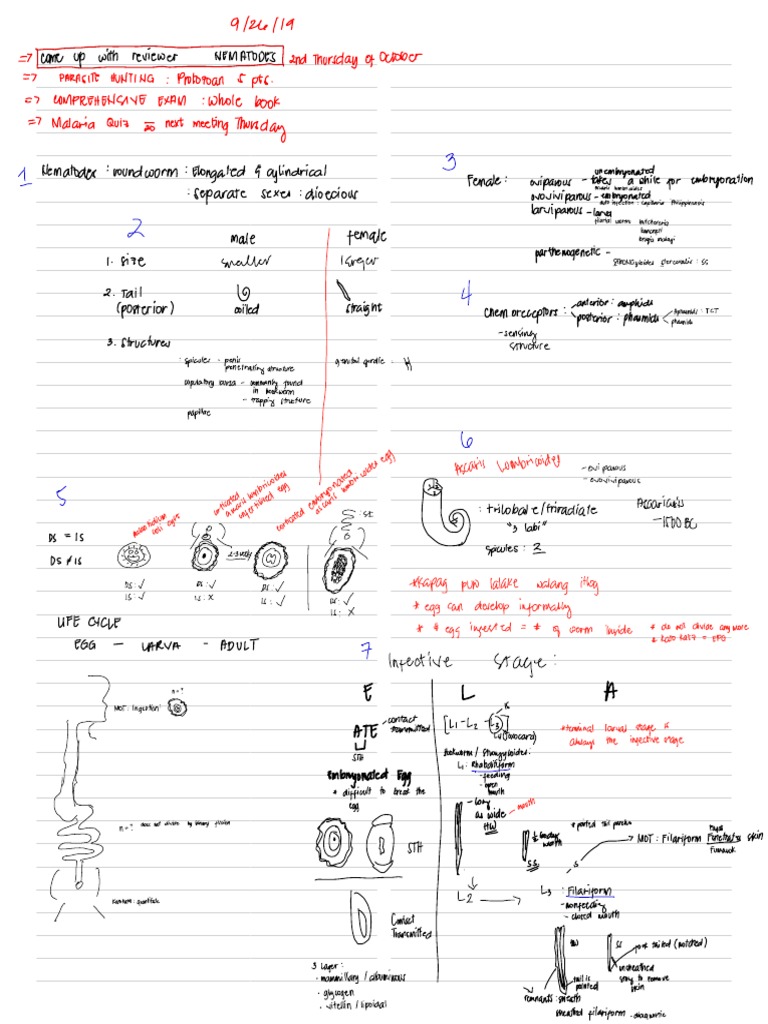 9/26/19
=> come up with reviewer NEMATODES 2nd Thursday of October
=> PARASITE HUNTING : Protozoan 5 pts.
=> COMPREHENSIVE EXAM : Whole book
=> Malaria Quiz 20 next meeting Thursday
1 Nematodes : roundworm : Elongated & cylindrical
: separate sexes : dioecious
2
male female
1. Size smaller larger
2. Tail
(posterior) coiled straight
3. Structures
: spicules - penis
penetrating structure
genital girdle :
copulatory bursa - commonly found
in hookworm
- trapping structure
papillae
3
Female :
unembryonated
oviparous - takes a while for embryonation
ovoviviparous - embryonated
auto infection : capillaria philippinensis
larviparous - larva
parthenogenetic -
4
chemoreceptors : anterior : amphids
posterior : phasmids
- sensing
structure
5
DS = IS
DS ≠ IS
DS : ✓ DS : ✓ DS : ✓ DS : ✓
IS : ✓ IS : X IS : ✓ IS : X
LIFE CYCLE
EGG — LARVA - ADULT
MOT : Ingestion
n = ?
n = ? does not divide by binary fission
6
Ascaris Lumbricoides
- oviparous
- ovoviviparous
: trilobate/triradiate
"3 labi"
spicules : 2
Ascariasis
- 1500 BC
* kapag puro lalake walang itlog
* egg can develop informally
* # egg ingested = # of worm inside
* do not divide any more
7 Infective Stage :
E L A
ATE
contact
transmitted
STH
Embryonated Egg
* difficult to break the
egg
STH
Contact
Transmitted
3 Layer :
· mammillary / albuminous
· glycogen
· vitellin / lipoidal
[L1 - L2 - L3]
hookworm / Strongyloides
L1 : Rhabditiform
- feeding
- open
mouth
- long
as wide - mouth
HW
SS
L2
* terminal larval stage is
always the infective stage
MOT : Filariform Penetrates skin
L3 : Filariform
- nonfeeding
- closed mouth
HW
tail is
pointed
SS
unsheathed
remnants : sheath
sheathed filariform